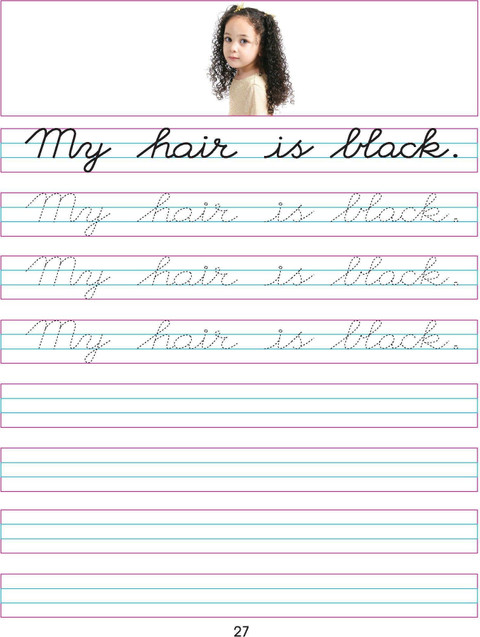 My hair is black.
My hair is black.
My hair is black.
My hair is black.
27